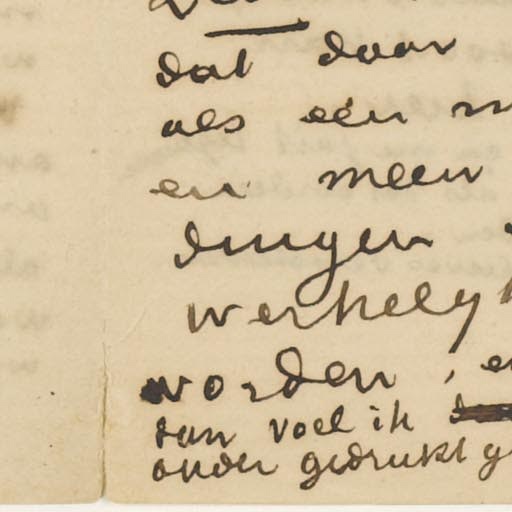 dat daar
als één
en meen
dingen
werkelijk
worden, en
dan voel ik
onder gedrukt